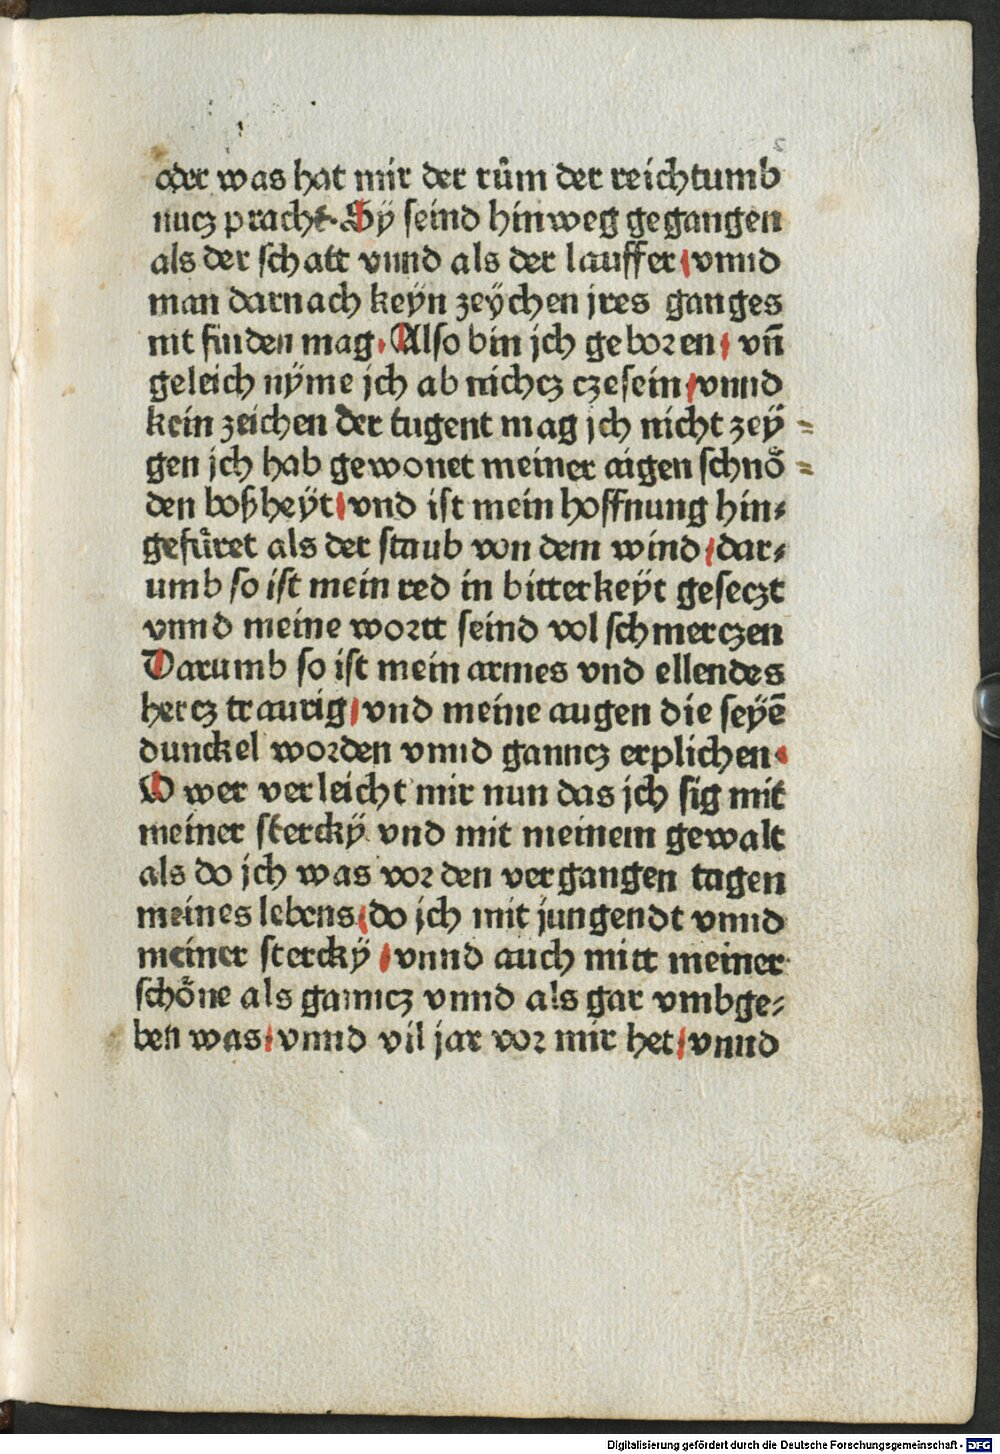 oder was hat mir der rům der reichtumb
nucz pracht. Sÿ seind hinweg gegangen
als der schatt vnnd als der lauffer / vnnd
man darnach keÿn zeÿchen jres ganges
nit finden mag. Also bin jch geboren / vn̄
geleich nÿme jch ab nichcz cze sein / vnnd
kein zeichen der tugent mag jch nicht zeÿ⸗
gen jch hab gewonet meiner aigen schnő⸗
den boßheÿt / vnd ist mein hoffnung hin⸗
gefůret als der staub von dem wind / dar⸗
umb so ist mein red in bitterkeÿt geseczt
vnnd meine wortt seind vol schmerczen
Darumb so ist mein armes vnd ellendes
hercz traurig / vnd meine augen die seÿē
dunckel worden vnnd ganncz erplichen.
O wer verleicht mir nun das jch sig mit
meiner sterckÿ vnd mit meinem gewalt
als do jch was vor den vergangen tagen
meines lebens / do jch mit jungendt vnnd
meiner sterckÿ / vnnd auch mitt meiner
schőne als ganncz vnnd als gar vmbge⸗
ben was / vnnd vil jar vor mir het / vnnd
2
Digitalisierung gefördert durch die Deutsche Forschungsgemeinschaft - DFG